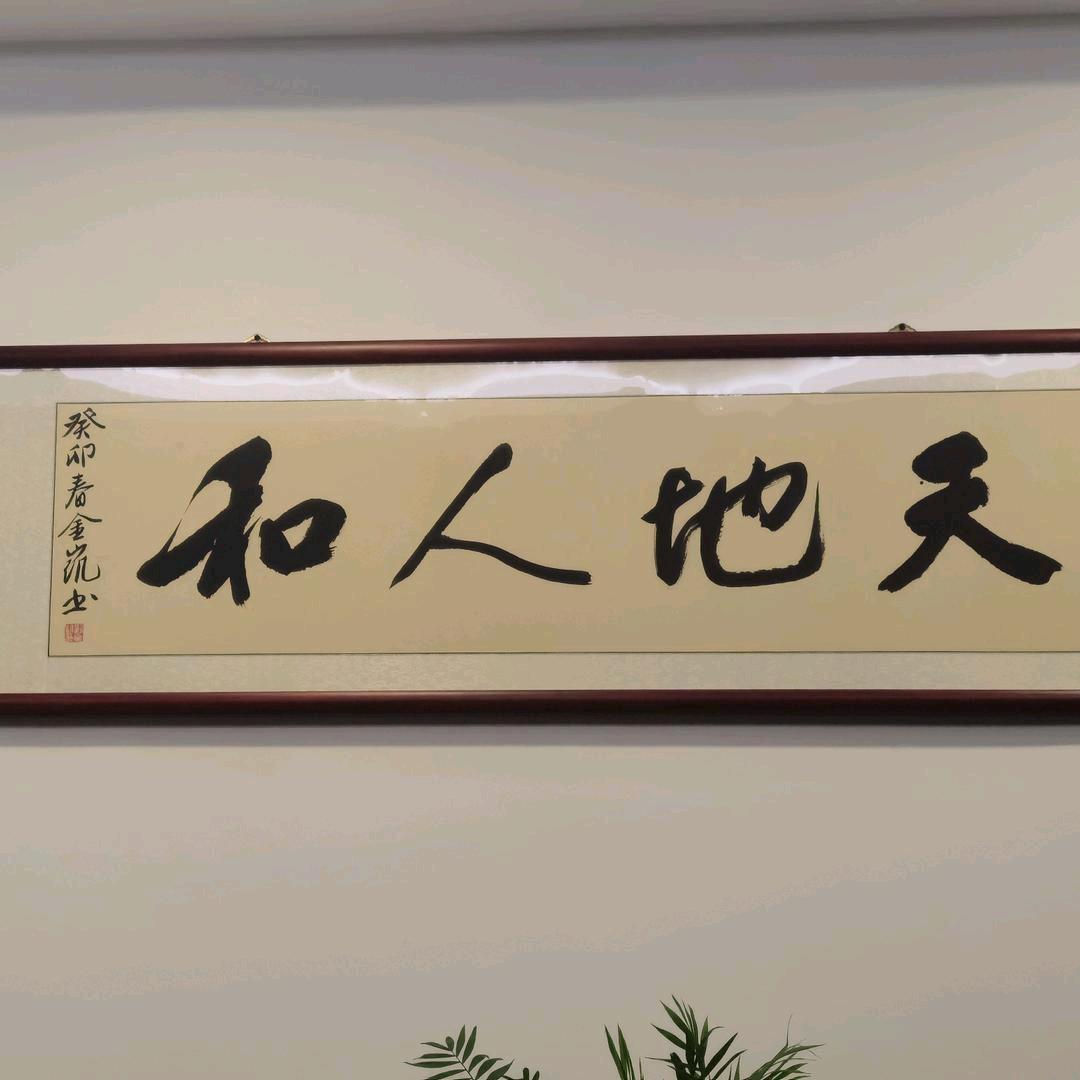 天地人和
癸卯春金凯书